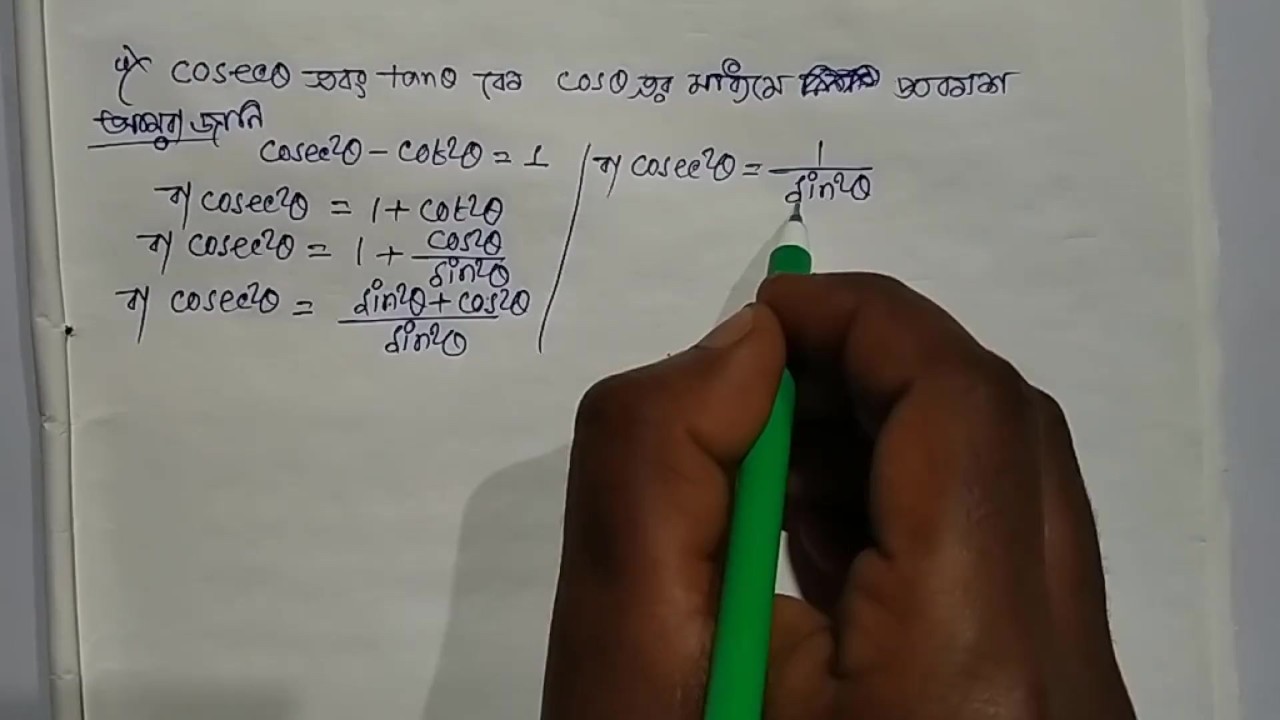 cosecθ এবং tanθ কে cosθ এর মাধ্যমে প্রকাশ
আমরা জানি
cosec²θ - cot²θ = 1
বা cosec²θ = 1 + cot²θ
বা cosec²θ = 1 + cos²θ/sin²θ
বা cosec²θ = sin²θ + cos²θ/sin²θ
বা cosec²θ = 1/sin²θ